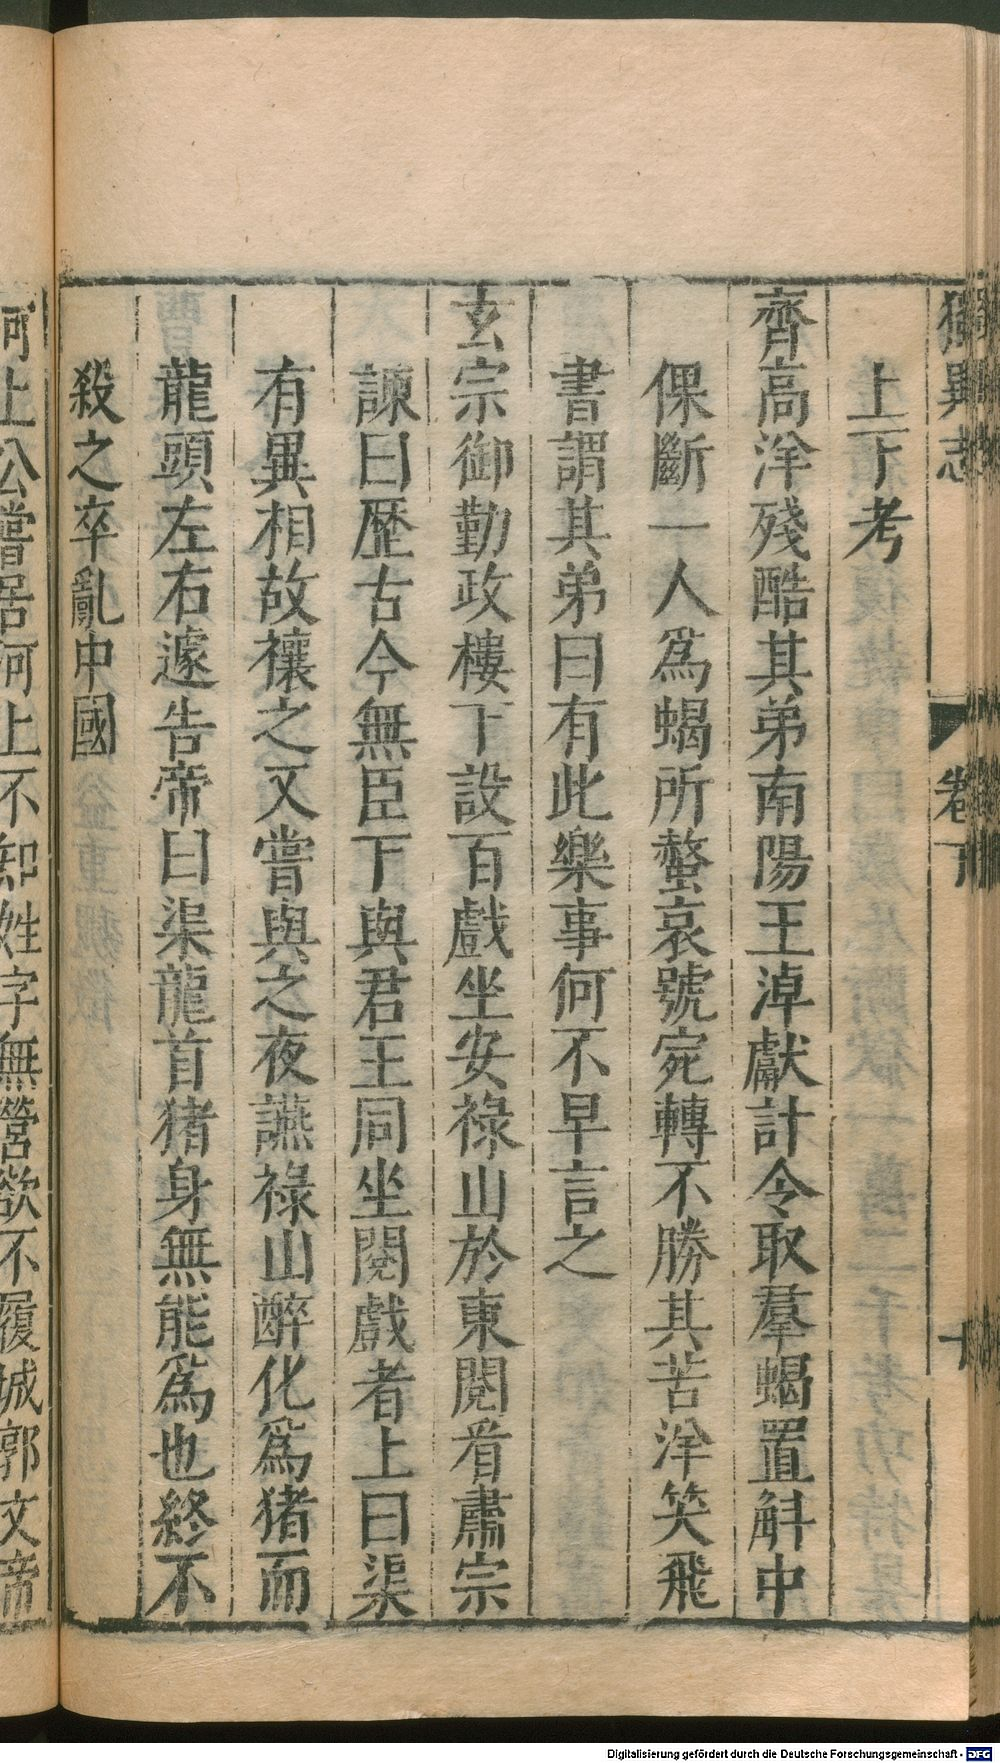 獨異志 卷下 十
上下考
齊高洋殘酷其弟南陽王淖獻計令取羣蝎置斛中
倮斷一人爲蝎所螫哀號宛轉不勝其苦洋笑飛
書謂其弟曰有此樂事何不早言之
玄宗御勤政樓下設百戲坐安祿山於東閣看肅宗
諫曰歷古今無臣下與君王同坐閱戲者上曰渠
有異相故禳之又嘗與之夜讌祿山醉化爲猪而
龍頭左右遽告帝曰渠龍首猪身無能爲也終不
殺之卒亂中國
河上公嘗居河上不知姓字無營欲不履城郭文帝
Digitalisierung gefördert durch die Deutsche Forschungsgemeinschaft - DFG